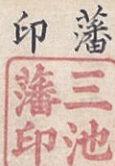 藩印
三池
藩印